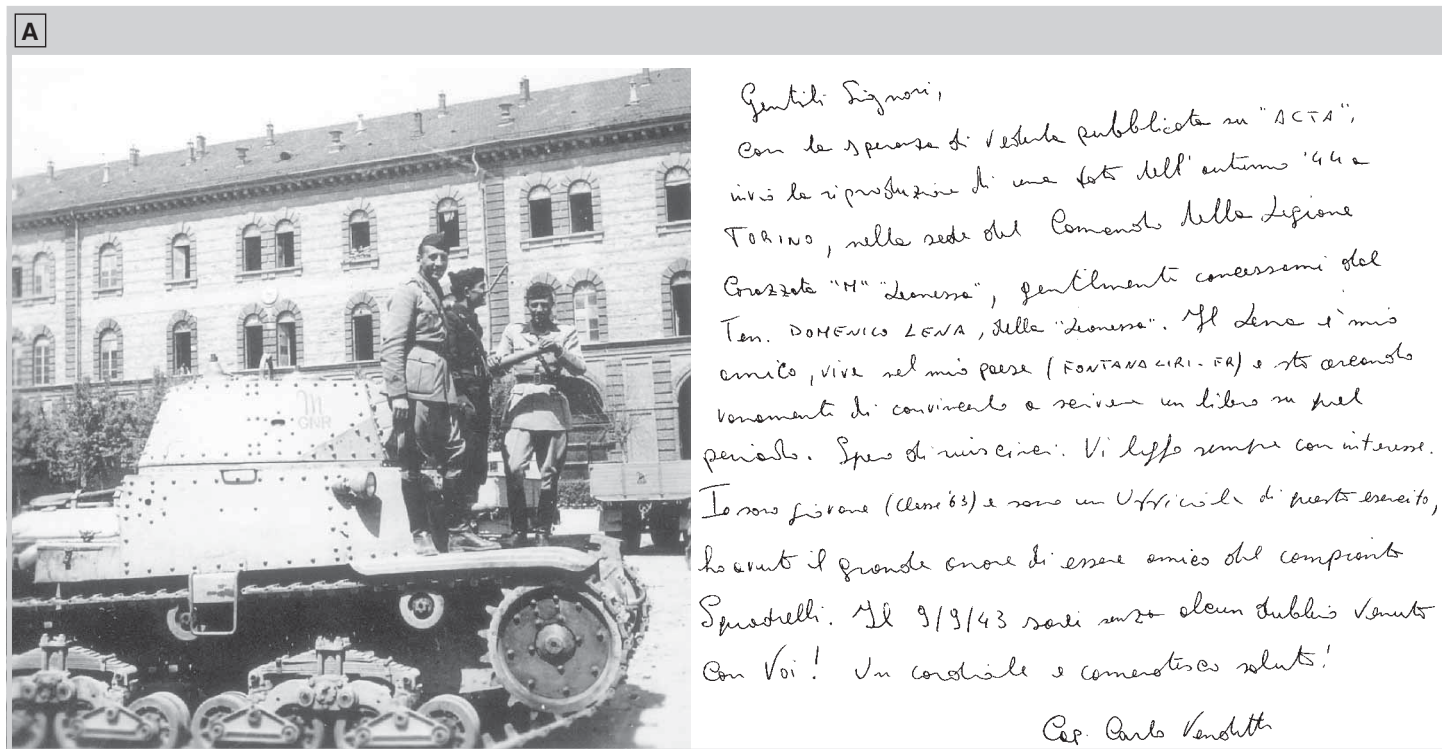 A
M
GNR
Gentili Signori,
con la speranza di vederla pubblicata su "ACTA",
invio la riproduzione di una foto dell'autunno '44 a
TORINO, nella sede del Comando della Legione
Corazzata "M" "Leonessa", gentilmente concessami dal
Ten. DOMENICO LENA, della "Leonessa". Il Lena è mio
amico, vive nel mio paese (FONTANA LIRI - FR) e sto cercando
vanamente di convincerlo a scrivere un libro su quel
periodo. Spero di riuscirci. Vi leggo sempre con interesse.
Io sono giovane (classe '63) e sono un Ufficiale di questo esercito,
ho avuto il grande onore di essere amico del compianto
Squadrelli. Il 9/9/43 sarei senza alcun dubbio venuto
con Voi! Un cordiale e cameratesco saluto!
Cap. Carlo Venditti